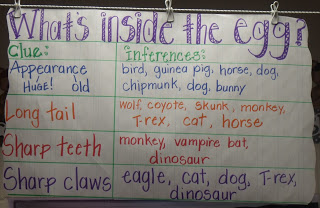 What's inside the egg?
Clue: Inferences:
Appearance bird, guinea pig, horse, dog,
HUGE! old chipmunk, dog, bunny
Long tail wolf, coyote, skunk, monkey,
T-rex, cat, horse
Sharp teeth monkey, vampire bat,
dinosaur
Sharp claws eagle, cat, dog, T-rex,
dinosaur